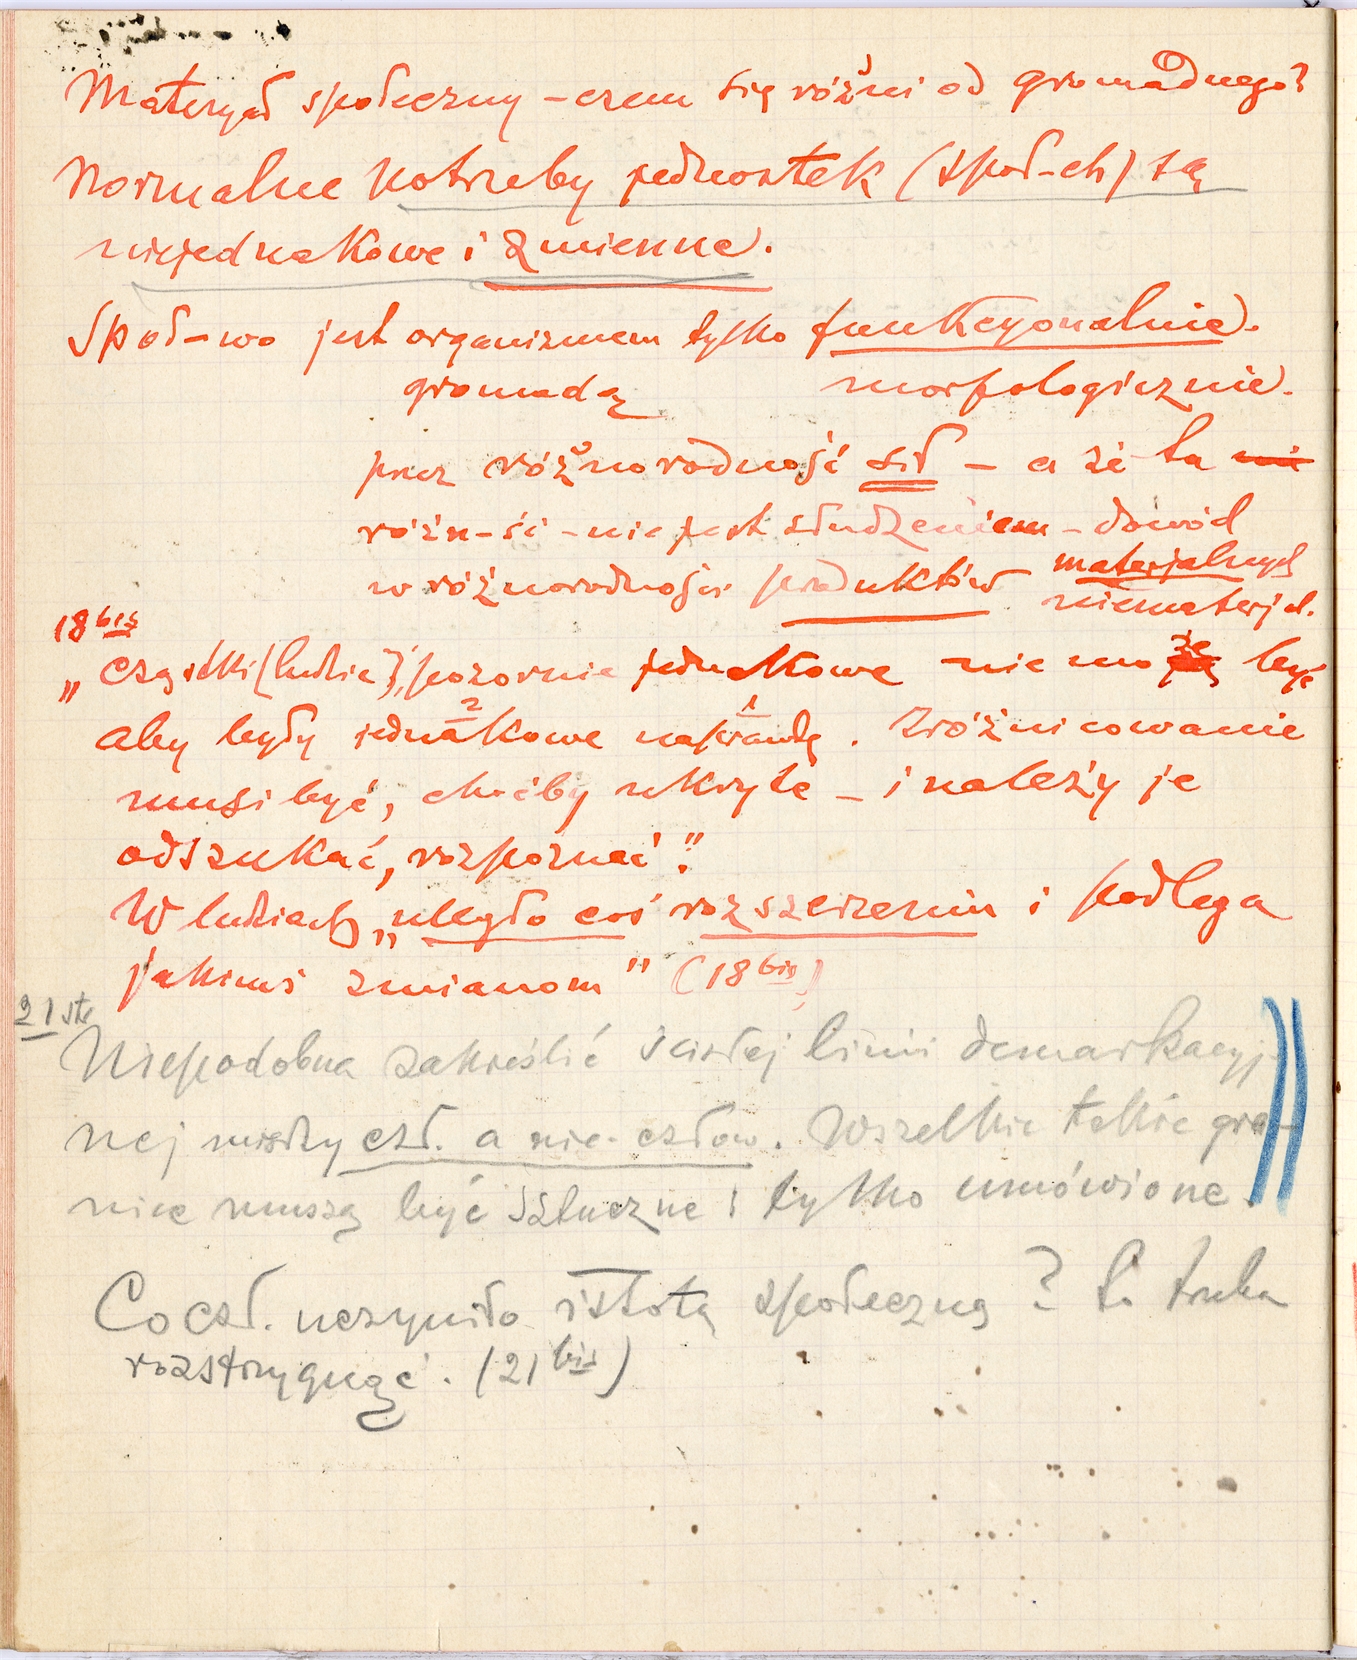 Materyał społeczny – czem się różni od gromadnego?
Normalne potrzeby jednostek (społ-ch) są
niejednakowe i zmienne.
Społ-wo jest organizmem tylko funkcyonalnie.
gromadą morfologicznie.
przez różnorodność sił – a że ta nie
różn-ść – nie jest złudzeniem – dowód
w różnorodności produktów materjalnych
niematerjal.
18 bis
„Cząstki (ludzie), pozornie jednakowe nie może być
aby były jednakowe naprawdę. Zróżnicowanie
2 1
musi być, choćby ukryte – i należy je
odszukać, rozpoznać".
W ludziach „uległo coś rozszerzeniu i podlega
jakimś zmianom" (18 bis)
21 str
Niepodobna zakreślić ścisłej linii demarkacyj-
nej między czł. a nie-człow. Wszelkie takie gra-
nice muszą być sztuczne i tylko umówione.
Co czł. uczyniło istotą społeczną? to trzeba
rozstrzygnąć. (21 bis)